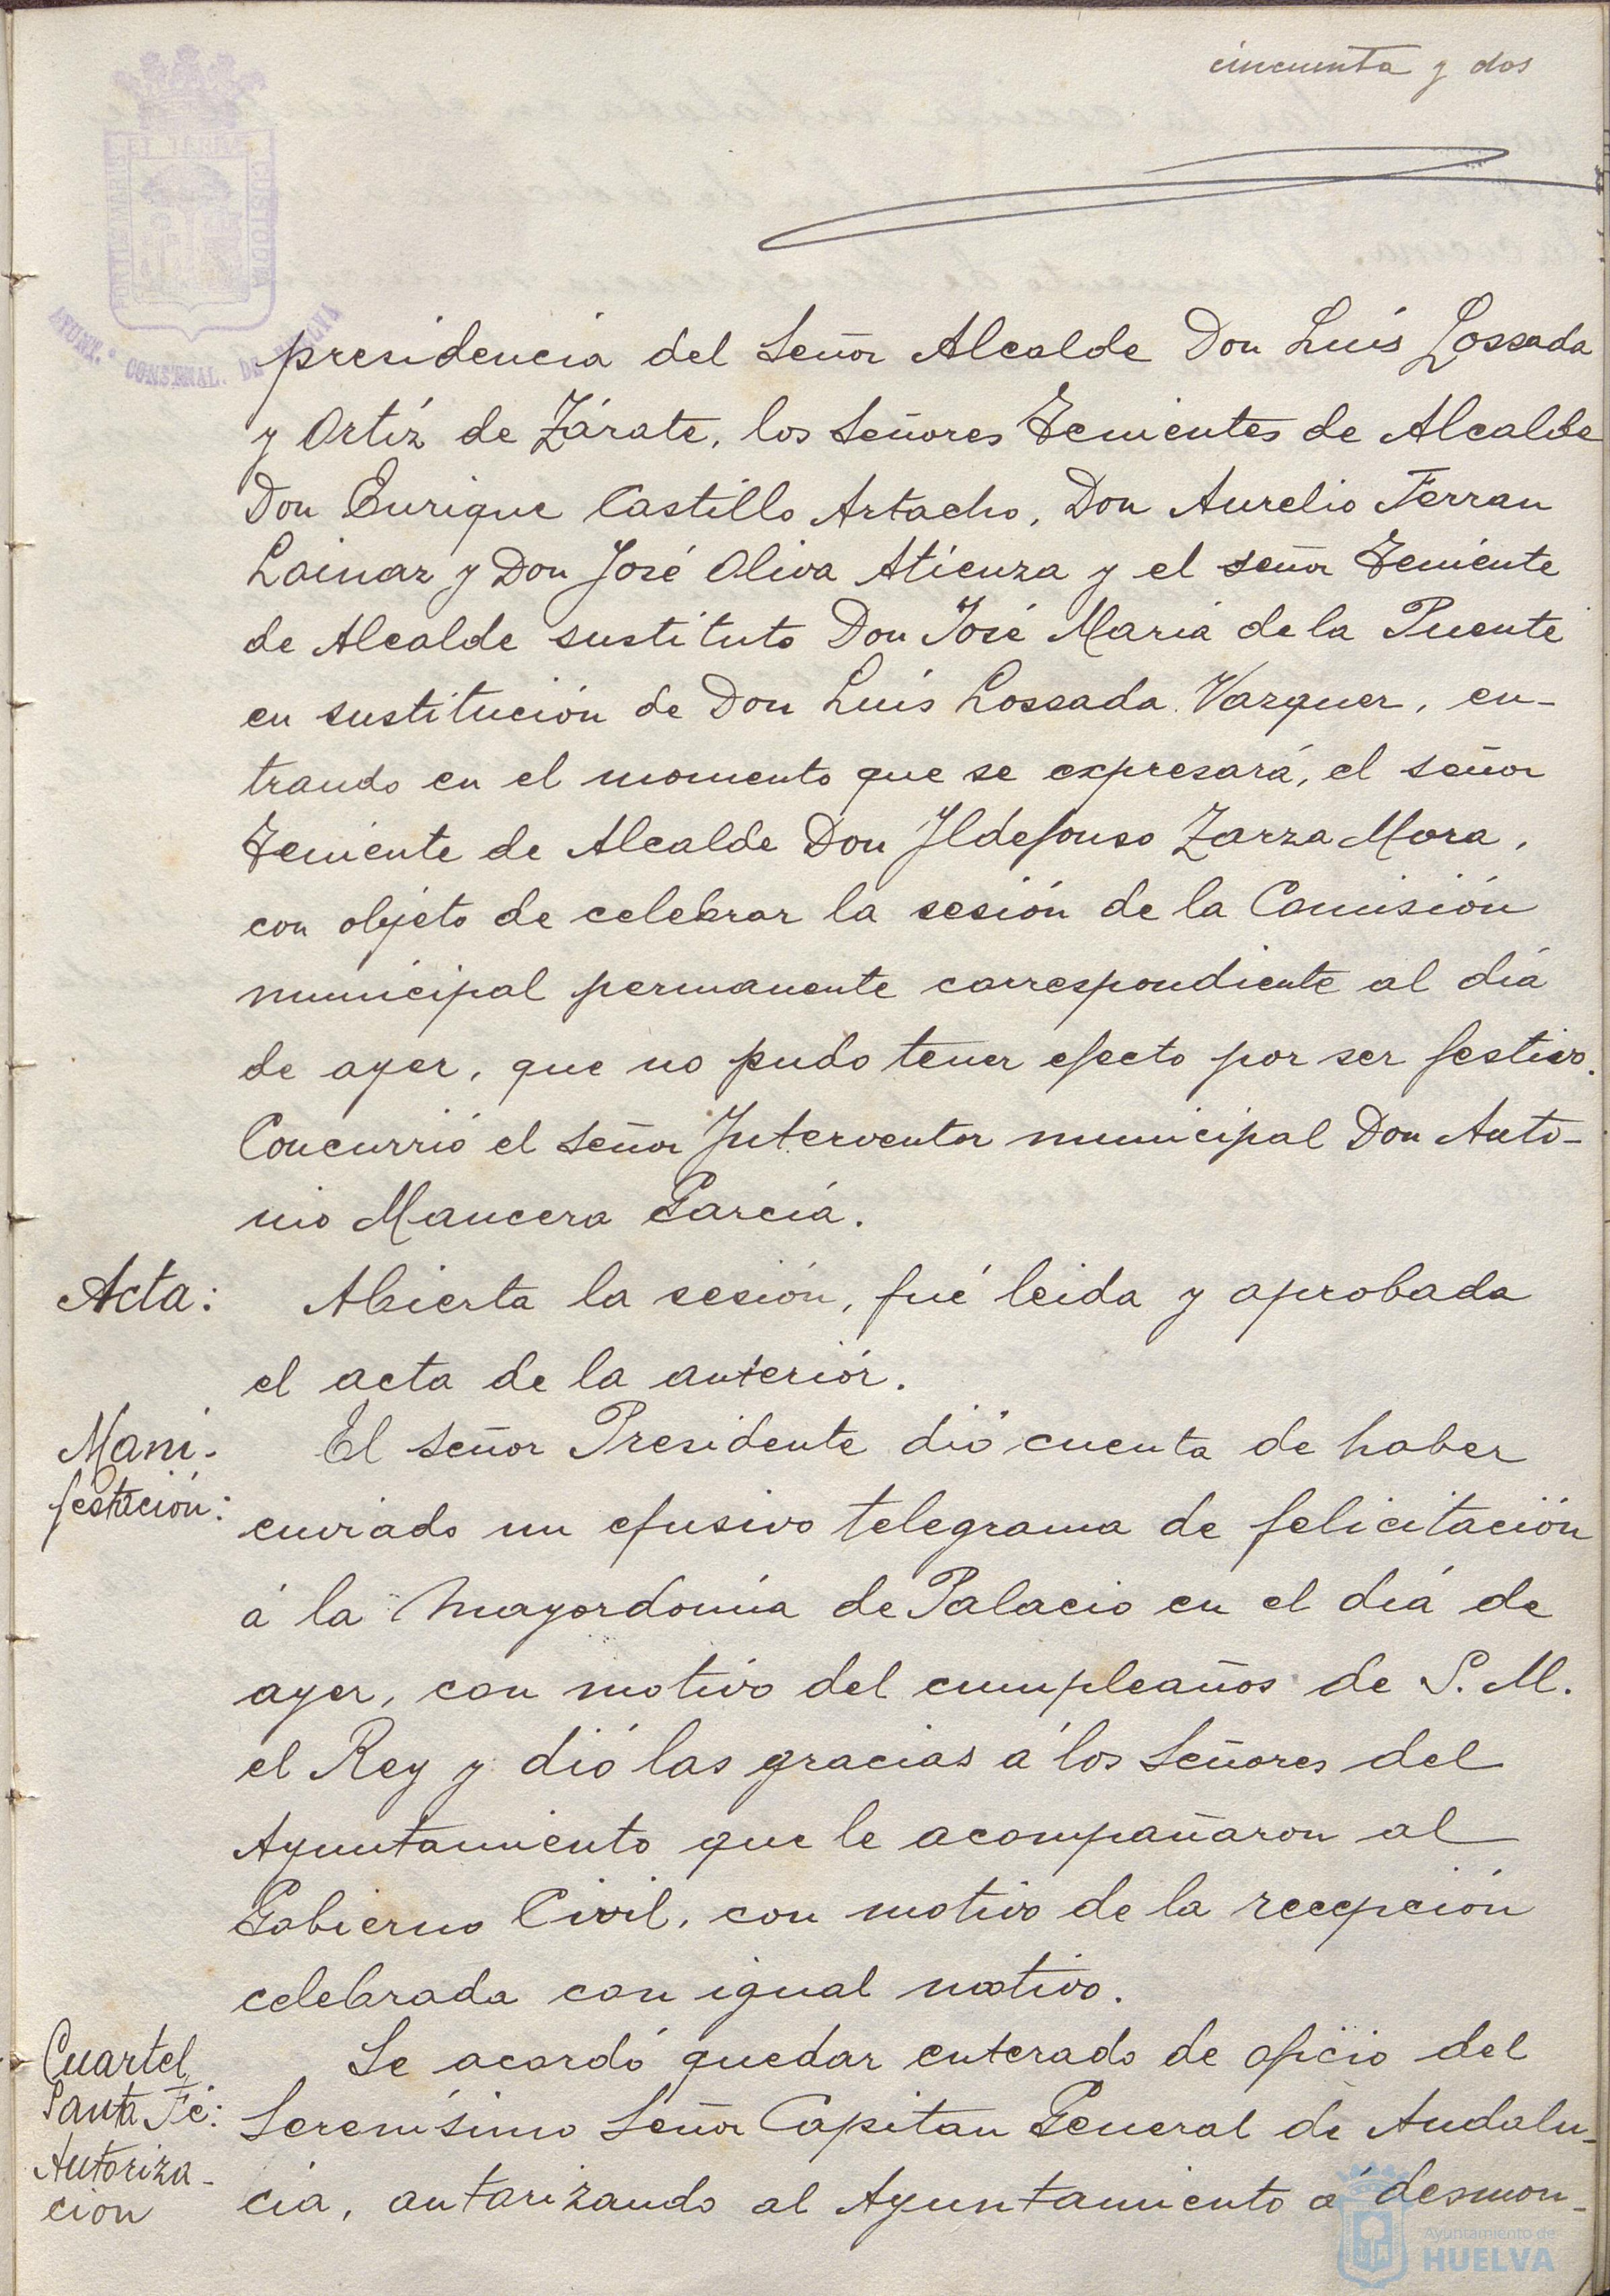 cincuenta y dos
PORTUS MARIS ET TERRAE CUSTODIA
AYUNT.º CONST.NAL. DE HUELVA
presidencia del Señor Alcalde Don Luis Lossada
y Ortíz de Zárate, los Señores Tenientes de Alcalde
Don Enrique Castillo Artacho, Don Aurelio Ferran
Lainar y Don José Oliva Atienza y el señor Teniente
de Alcalde sustituto Don José María de la Puente
en sustitución de Don Luis Lossada Vazquez, en-
trando en el momento que se expresará, el señor
Teniente de Alcalde Don Ildefonso Zarza Mora,
con objeto de celebrar la sesión de la Comisión
municipal permanente correspondiente al día
de ayer, que no pudo tener efecto por ser festivo.
Concurrió el Señor Interventor municipal Don Anto-
nio Mancera García.
Acta: Abierta la sesión, fué leida y aprobada
el acta de la anteriór.
Mani- El Señor Presidente dió cuenta de haber
festación: enviado un efusivo telegrama de felicitación
á la Mayordomía de Palacio en el día de
ayer, con motivo del cumpleaños de S. M.
el Rey y dió las gracias á los Señores del
Ayuntamiento que le acompañaron al
Gobierno Civil, con motivo de la recepción
celebrada con igual motivo.
Cuartel Se acordó quedar enterado de oficio del
Santa Fé: Serenísimo Señor Capitan General de Andalu-
Autoriza- cía, autorizando al Ayuntamiento á desmon-
ción
Ayuntamiento de
HUELVA